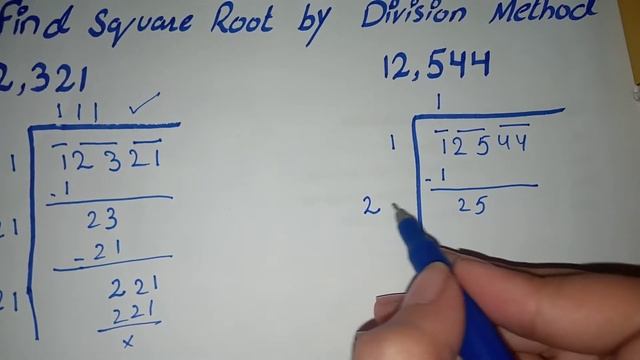 Find Square Root by Division Method
2,321
1 1 1 ✓
1
1 23 21
-1
21
23
-21
21
221
221
x
12,544
1
1
1 25 44
-1
2
25